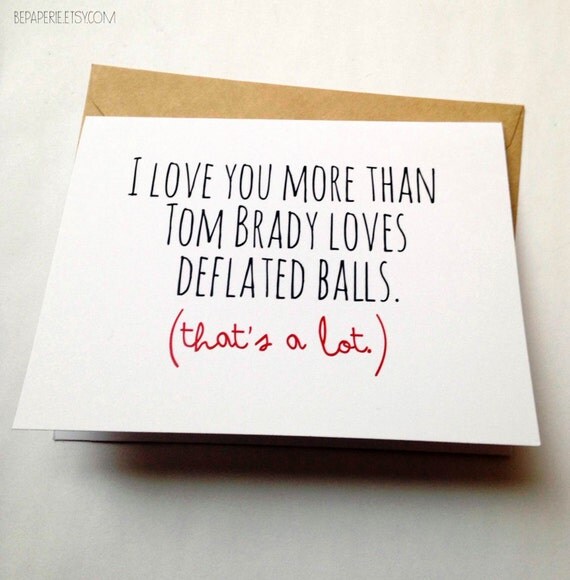 BEPAPERIE.ETSY.COM
I LOVE YOU MORE THAN
TOM BRADY LOVES
DEFLATED BALLS.
(that's a lot.)